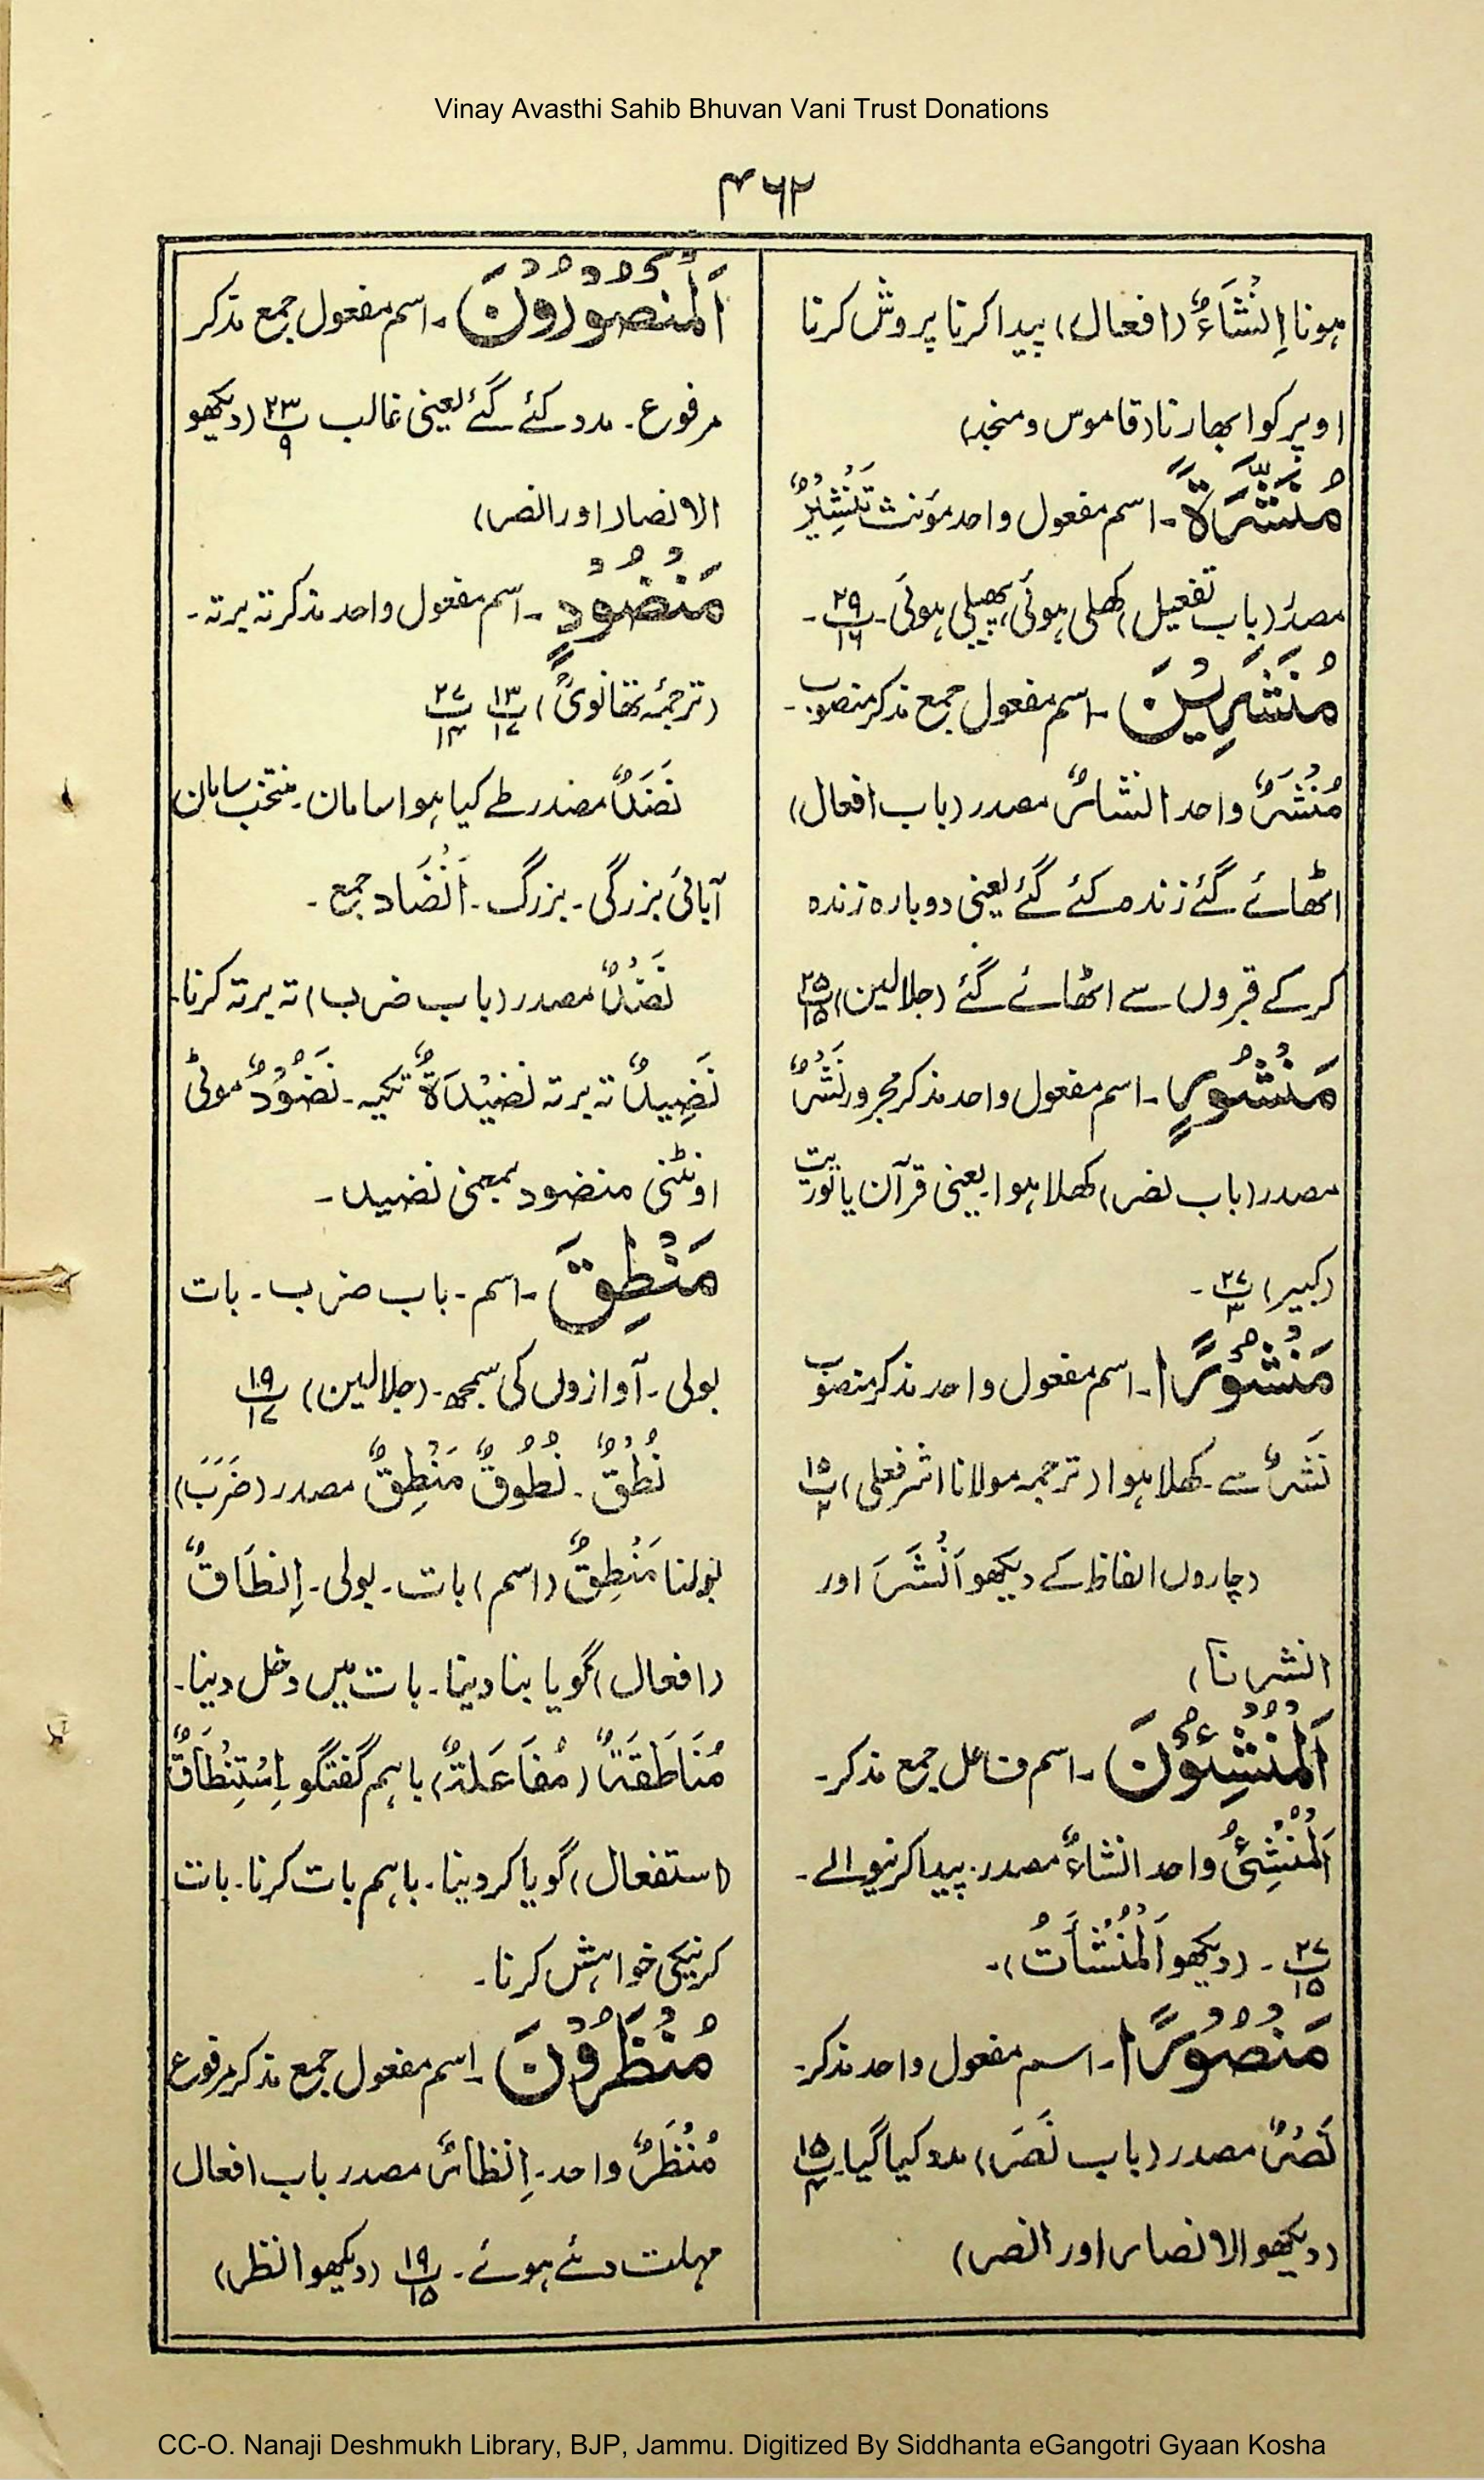 Vinay Avasthi Sahib Bhuvan Vani Trust Donations
۴۶۲
ہونا اِنْشَاءٌ (افعال) پیدا کرنا پروش کرنا
اوپر کو ابھارنا (قاموس و منجد)
مُنَشَّرَةً۔ اسم مفعول واحد مؤنث تَنْشِيْرٌ
مصدر (باب تفعیل) کھلی ہوئی، پھیلی ہوئی۔ ۲۹ پ ۱۶۔
مُنْشَرِيْنَ۔ اسم مفعول جمع مذکر منصوب۔
مُنْشَرٌ واحد انشارٌ مصدر (باب افعال)
اٹھائے گئے زندہ کئے گئے یعنی دوبارہ زندہ
کر کے قبروں سے اٹھائے گئے (جلالین) ۲۵ پ ۱۵
مَنْشُوْرٍ۔ اسم مفعول واحد مذکر مجرور نَشْرٌ
مصدر (باب نصر) کھلا ہوا۔ یعنی قرآن یا توریت
(کبیر) ۲۷ پ ۳۔
مَنْشُوْرًا۔ اسم مفعول واحد مذکر منصوب
نَشْرٌ سے۔ کھلا ہوا (ترجمہ مولانا اشرفعلی) ۱۵ پ ۲
(چاروں الفاظ کے دیکھو اَنْشَرَ اور
انشرنا)
اَلْمُنْشِئُوْنَ۔ اسم فاعل جمع مذکر۔
اَلْمُنْشِئُ واحد انشاءٌ مصدر۔ پیدا کرنیوالے۔
۲۷ پ ۱۵۔ (دیکھو اَلْمُنْشَأٰتُ)۔
مَنْصُوْرًا۔ اسم مفعول واحد مذکر۔
نَصْرٌ مصدر (باب نَصَرَ) مدد کیا گیا۔ ۱۵ پ ۴
(دیکھو الانصار اور النصر)
اَلْمَنْصُوْرُوْنَ۔ اسم مفعول جمع مذکر
مرفوع۔ مدد کئے گئے یعنی غالب ۲۳ پ ۹ (دیکھو
الانصار اور النصر)
مَنْضُوْدٍ۔ اسم مفعول واحد مذکر تہ برتہ۔
(ترجمۂ تھانویؒ) ۱۲ پ ۱۳ ۲۷ پ ۱۴
نَضَدٌ مصدر طے کیا ہوا سامان۔ منتخب سامان
آبائی بزرگی۔ بزرگ۔ اَنْضَاد جمع۔
نَضْدٌ مصدر (باب ضرب) تہ برتہ کرنا۔
نَضِيدٌ تہ برتہ نَضِيْدَةٌ تکیہ۔ نَضُوْدٌ موٹی
اونٹنی منضود بمعنی نضید۔
مَنْطِقَ۔ اسم۔ باب ضرب۔ بات
بولی۔ آوازوں کی سمجھ۔ (جلالین) ۱۹ پ ۱۷
نُطْقٌ۔ نُطُوْقٌ مَنْطِقٌ مصدر (ضَرَبَ)
بولنا مَنْطِقٌ (اسم) بات۔ بولی۔ اِنْطَاقٌ
(افعال) گویا بنا دینا۔ بات میں دخل دینا۔
مُنَاطَقَةٌ (مُفَاعَلَةٌ) باہم گفتگو اِسْتِنْطَاقٌ
(استفعال) گویا کر دینا۔ باہم بات کرنا۔ بات
کرنیکی خواہش کرنا۔
مُنْظَرُوْنَ۔ اسم مفعول جمع مذکر مرفوع
مُنْظَرٌ واحد۔ اِنْظَارٌ مصدر باب افعال
مہلت دئے ہوئے۔ ۱۹ پ ۱۵ (دیکھو انظر)
CC-O. Nanaji Deshmukh Library, BJP, Jammu. Digitized By Siddhanta eGangotri Gyaan Kosha